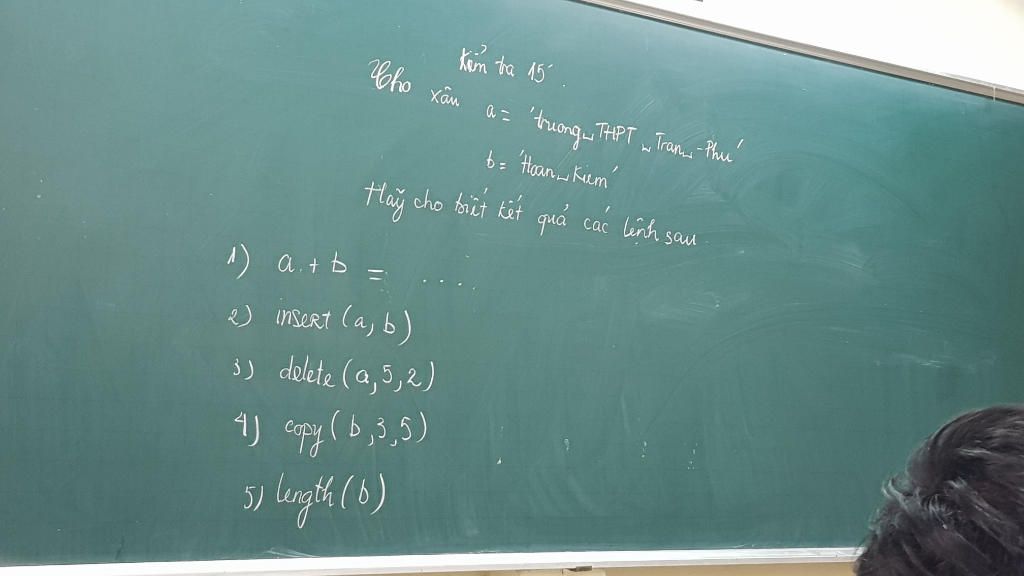 Kiểm tra 15'.
Cho xâu a = 'truong␣THPT␣Tran␣-Phu'
b = 'Hoan␣Kiem'
Hãy cho biết kết quả các lệnh sau
1) a + b = ....
2) insert (a, b)
3) delete (a, 5, 2)
4) copy (b, 3, 5)
5) length (b)